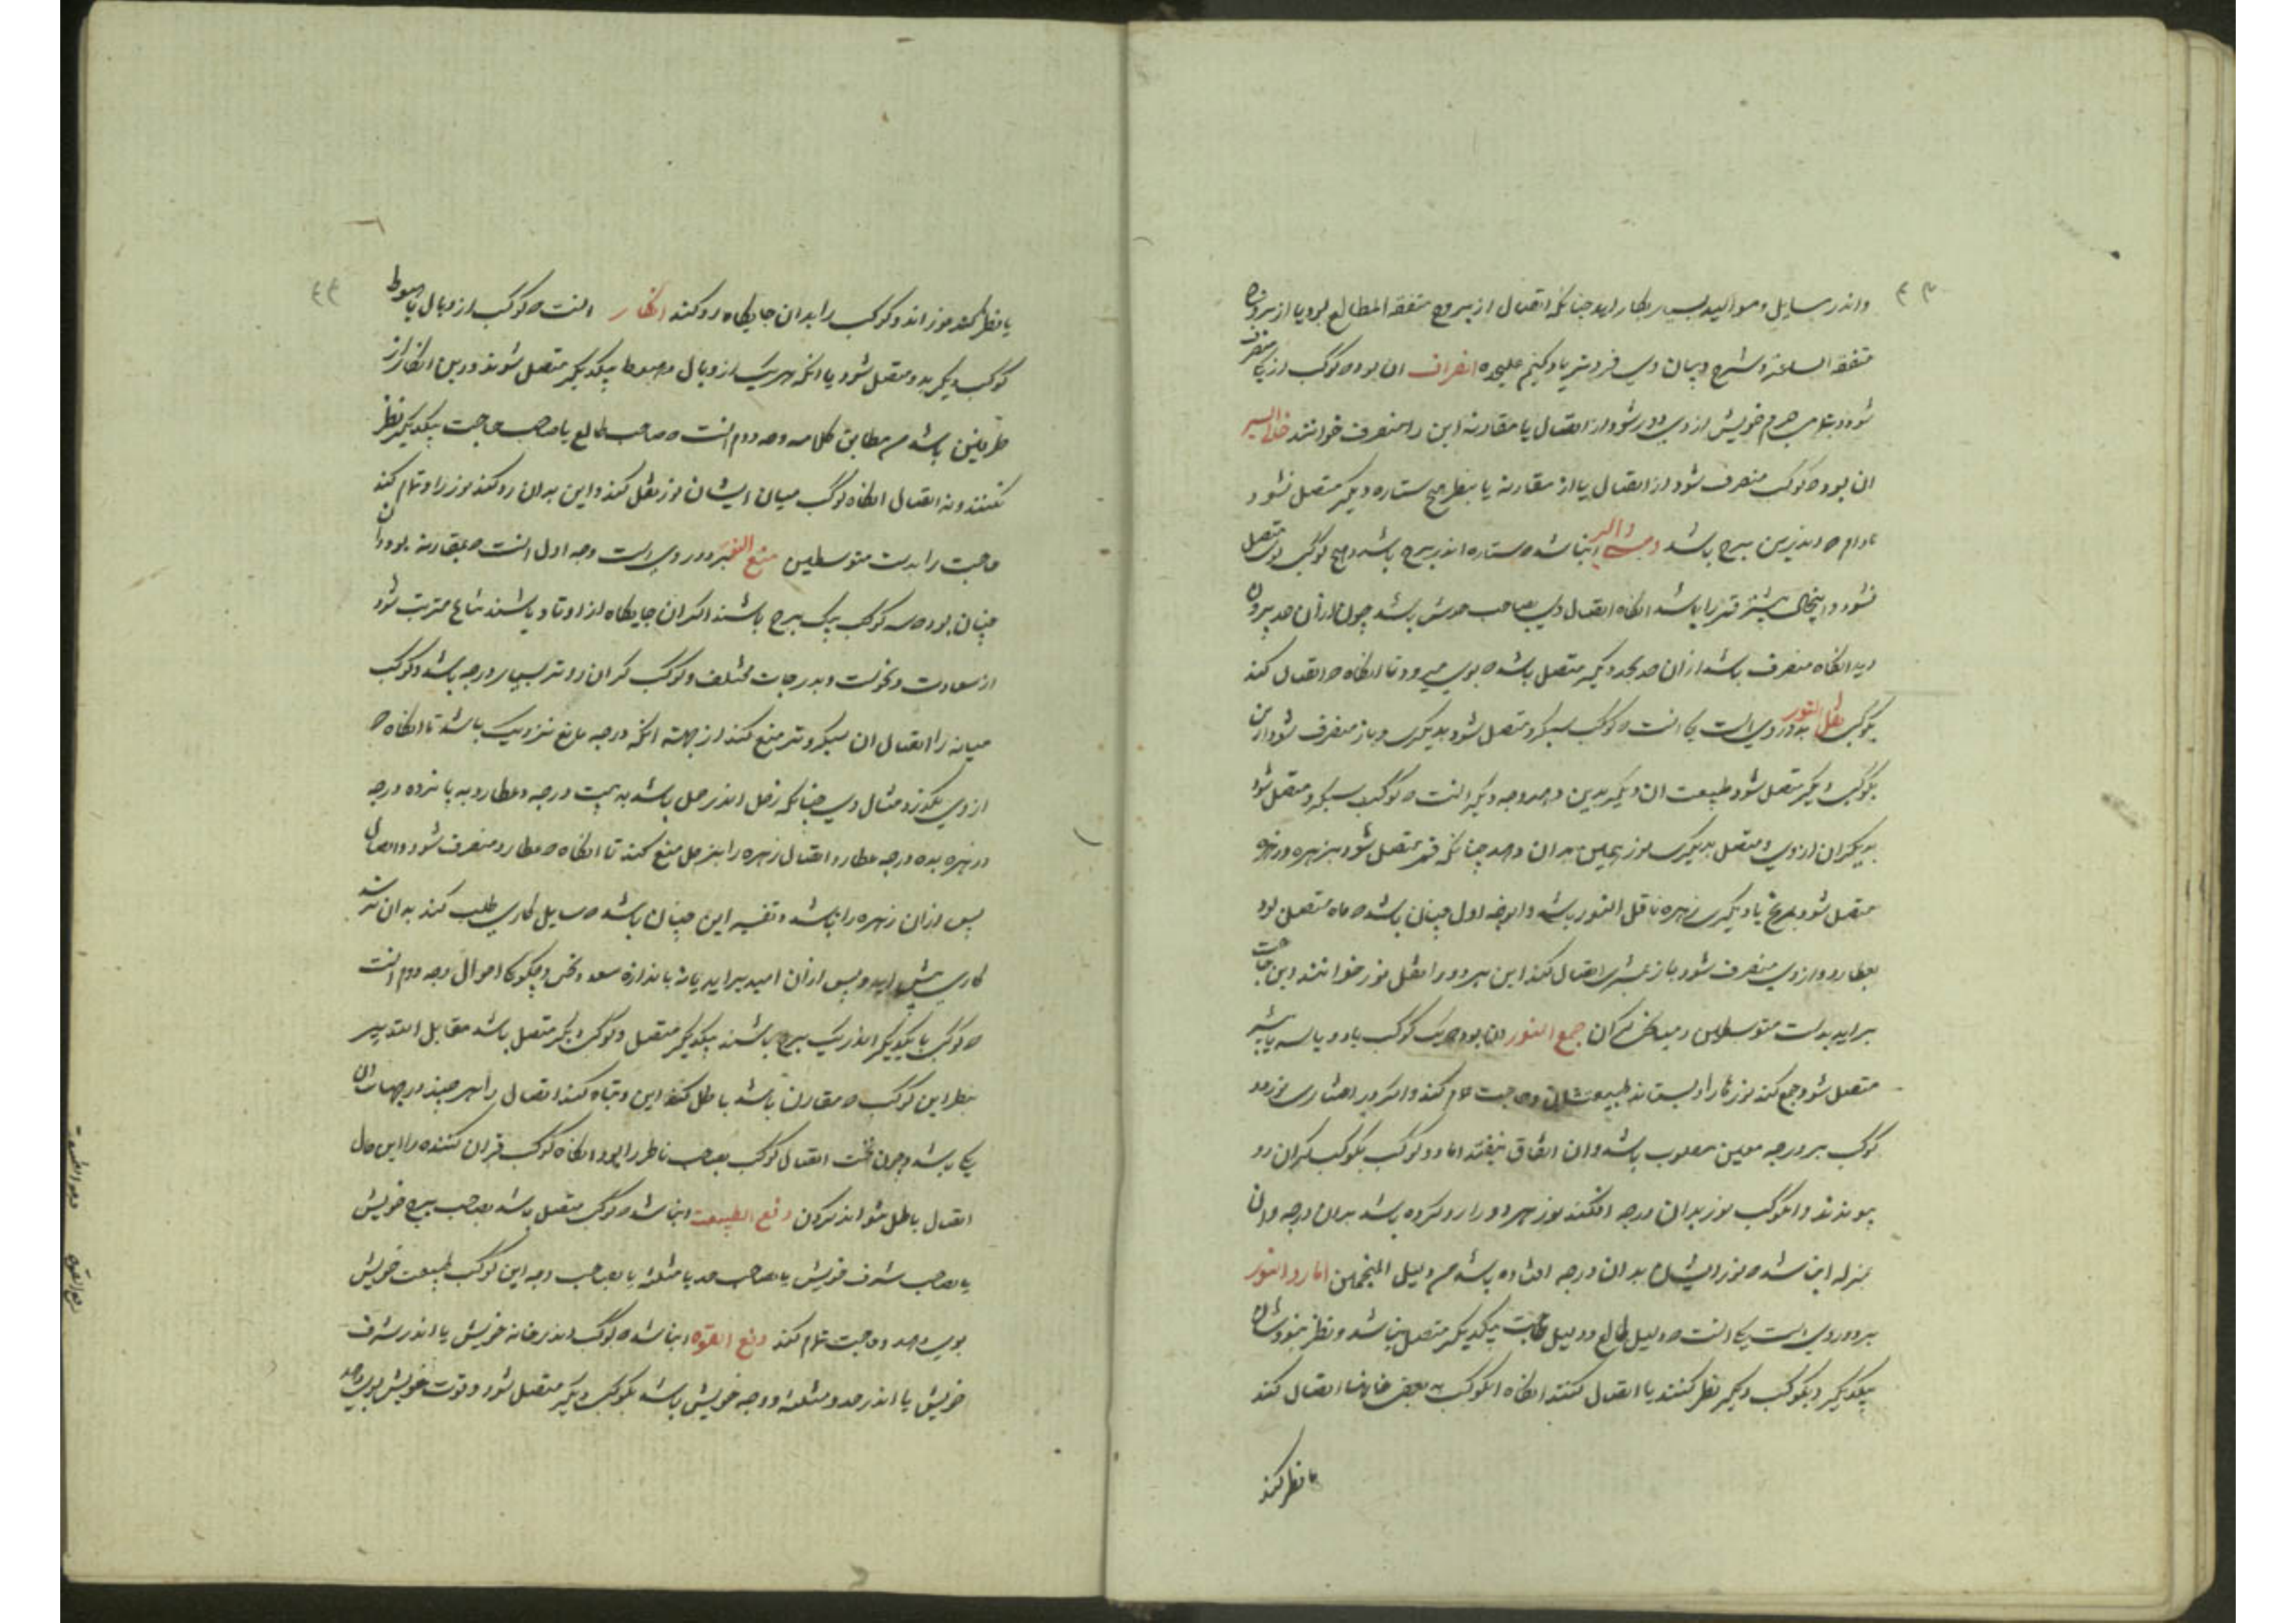 واندر مسایل و موالید بسیار بکار اید چنانکه اتصال از بروج متفقة المطالع بود یا از بروج
متفقة الساعة و شرح و بیان وی فروتر یاد کنیم علیحده انصراف ان بود ه کوکب از یکی منصرف
شود و بتمامی جرم خویش از وی دور شود از اتصال یا مقارنه این را منصرف خوانند خالی السیر
ان بود ه کوکب منصرف شود از اتصال یا از مقارنه یا بنظر هیچ ستاره دیگر متصل نشود
مادام ه اندرین برج باشد وحشی السیر انباشد ه ستاره اندر برج باشد و هیچ کوکب بوی متصل
نشود و اینحال بیشتر قمر را باشد انکاه اتصال وی بصاحب حدش باشد چون از آن حد بیرون
اید انکاه منصرف باشد از ان حد بحد دیگر متصل باشد ه بوی میرود تا انکاه ه اتصال کند
بکوکبی نقل النور بدو روی است یکی انست ه کوکب سبکرو متصل شود بدیگری و باز منصرف شود از این
بکوکب دیگر متصل شود طبیعت ان دیگر بدین دهد وجه دیگر انست ه کوکب سبکرو متصل شود
بدیگران از وی و متصل بدیگری نور همین بدان دهد چنانکه قمر متصل شود بزهره و زهره
متصل شود بمریخ یا دیگری زهره ناقل النور باشد و اوجه اول چنان باشد ه ماه متصل بود
بعطارد و از وی منصرف شود باز بمشتری اتصال کند این هر دو را نقل نور خوانند و این حاجت
براید بدست متوسطین و میانجی کران جمع النور ان بود ه یک کوکب با دو یا سه یا بیشتر
متصل شود و جمع کند نور را و بستاند طبیعتشان و حاجت تمام کند و اگر در اختیاری نور دو
کوکب بر درجه معین مطلوب باشد و ان اتفاق نیفتد اما دو کوکب بکوکب کران رو
پیوندند و انکوکب نور بدان درجه افکند نور هر دو را رد کرده باشد بدان درجه و ان
بمنزله ان باشد ه نور ایشان بدان درجه افتاده باشد م دلیل المنجمین اما رد النور
بر دو روی است یکی انست ه دلیل طالع و دلیل حاجت بیکدیگر متصل نباشد و نظر نبودشان
بیکدیگر و بکوکب دیگر نظر کنند یا اتصال کنند انکاه انکوکب به بعض خانها اتصال کند
یا نظر کند
یا نظر کند نور اندو کوکب را بدان جایکاه رد کند انکار انست ه کوکب از وبال یا هبوط
کوکب دیگر بدو متصل شود یا انکه هر یک از وبال و هبوط بیکدیگر متصل شوند و درین انکار از
طرفین باشد م مطابق کلامه وجه دوم انست ه صاحب طالع یا صاحب حاجت بیکدیگر نظر
نکنند و نه اتصال انکاه کوکب میان ایشان نور نقل کند و این بدان رد کند نور را و تمام کند
حاجت را بدست متوسطین منع النور بر دو روی است وجه اول انست ه بمقارنه بود و ان
چنان بود ه سه کوکب بیک برج باشند اکر ان جایکاه از اوتاد باشند شاع مترتب شود
از سعادت و نحوست و بدرجات مختلف و کوکب کران رو تر بسیار درجه باشد و کوکب
میانه را اتصال ان سبکرو تر منع کند از جهة انکه درجه مانع نزدیک باشد تا انکاه ه
از وی بکذرد مثال وی چنانکه زحل اندر حمل باشد به بیست درجه و عطارد به پانزده درجه
و زهره بده درجه عطارد اتصال زهره را بزحل منع کند تا انکاه ه عطارد منصرف شود و اتصال
پس از ان زهره را باشد و تفسیر این چنان باشد ه سایل کاری طلب کند به ان
کاری پیش اید و پس از ان امید براید یا نه باندازه سعد و نحس و چکونکی احوال وجه دوم انست
ه کوکب با یکدیگر اندر یک برج باشند بیکدیگر متصل و کوکب دیگر متصل باشد مقابل التدبیر
بنظر این کوکب ه مقارن باشد باطل کند این و تباه کند اتصال را هر چند درجهاشان
یکی باشد و چون نخست اتصال کوکب بصاحب ناظر را بود انکاه کوکب قران کننده را این حال
اتصال باطل نتواند کردن دفع الطبیعت انباشد ه کوکب متصل باشد بصاحب برج خویش
یا بصاحب شرف خویش یا بصاحب حد یا مثلثه یا بصاحب وجه این کوکب طبیعت خویش
بوی دهد و حاجت تمام کند دفع القوة انباشد ه کوکب اندر خانه خویش یا اندر شرف
خویش یا اندر حد و مثلثه و وجه خویش باشد بکوکب دیگر متصل شود و قوت خویش بوی دهد
دفع الطبیعت
دفع القوة